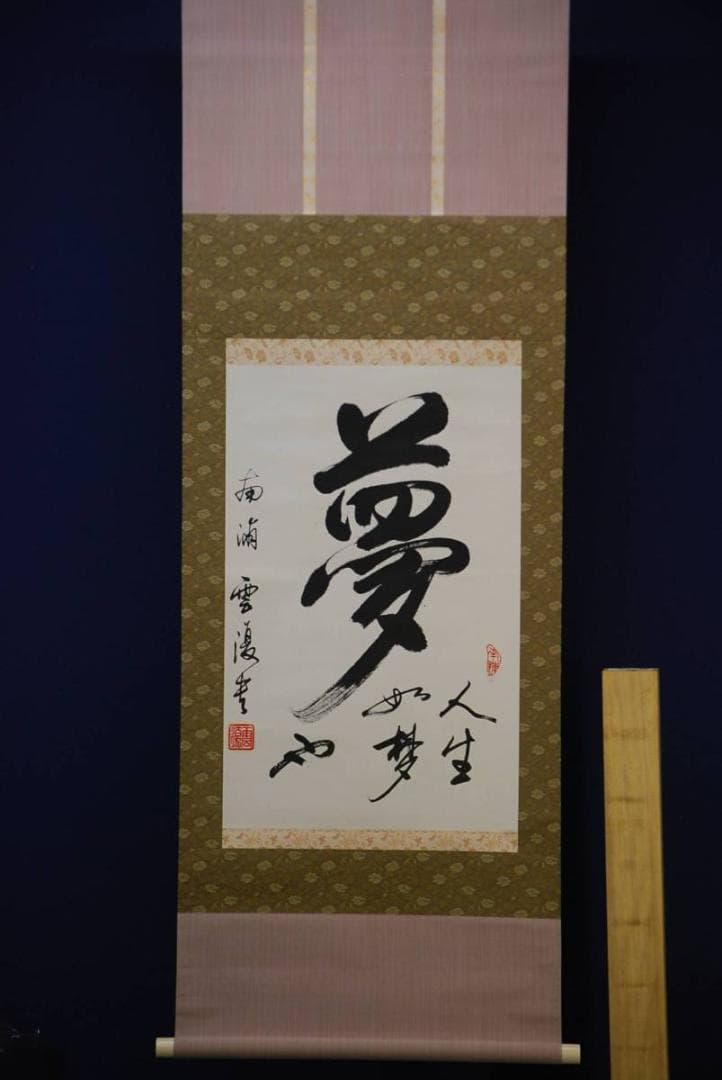 夢
人生
如梦
也
南浦 雲漫書